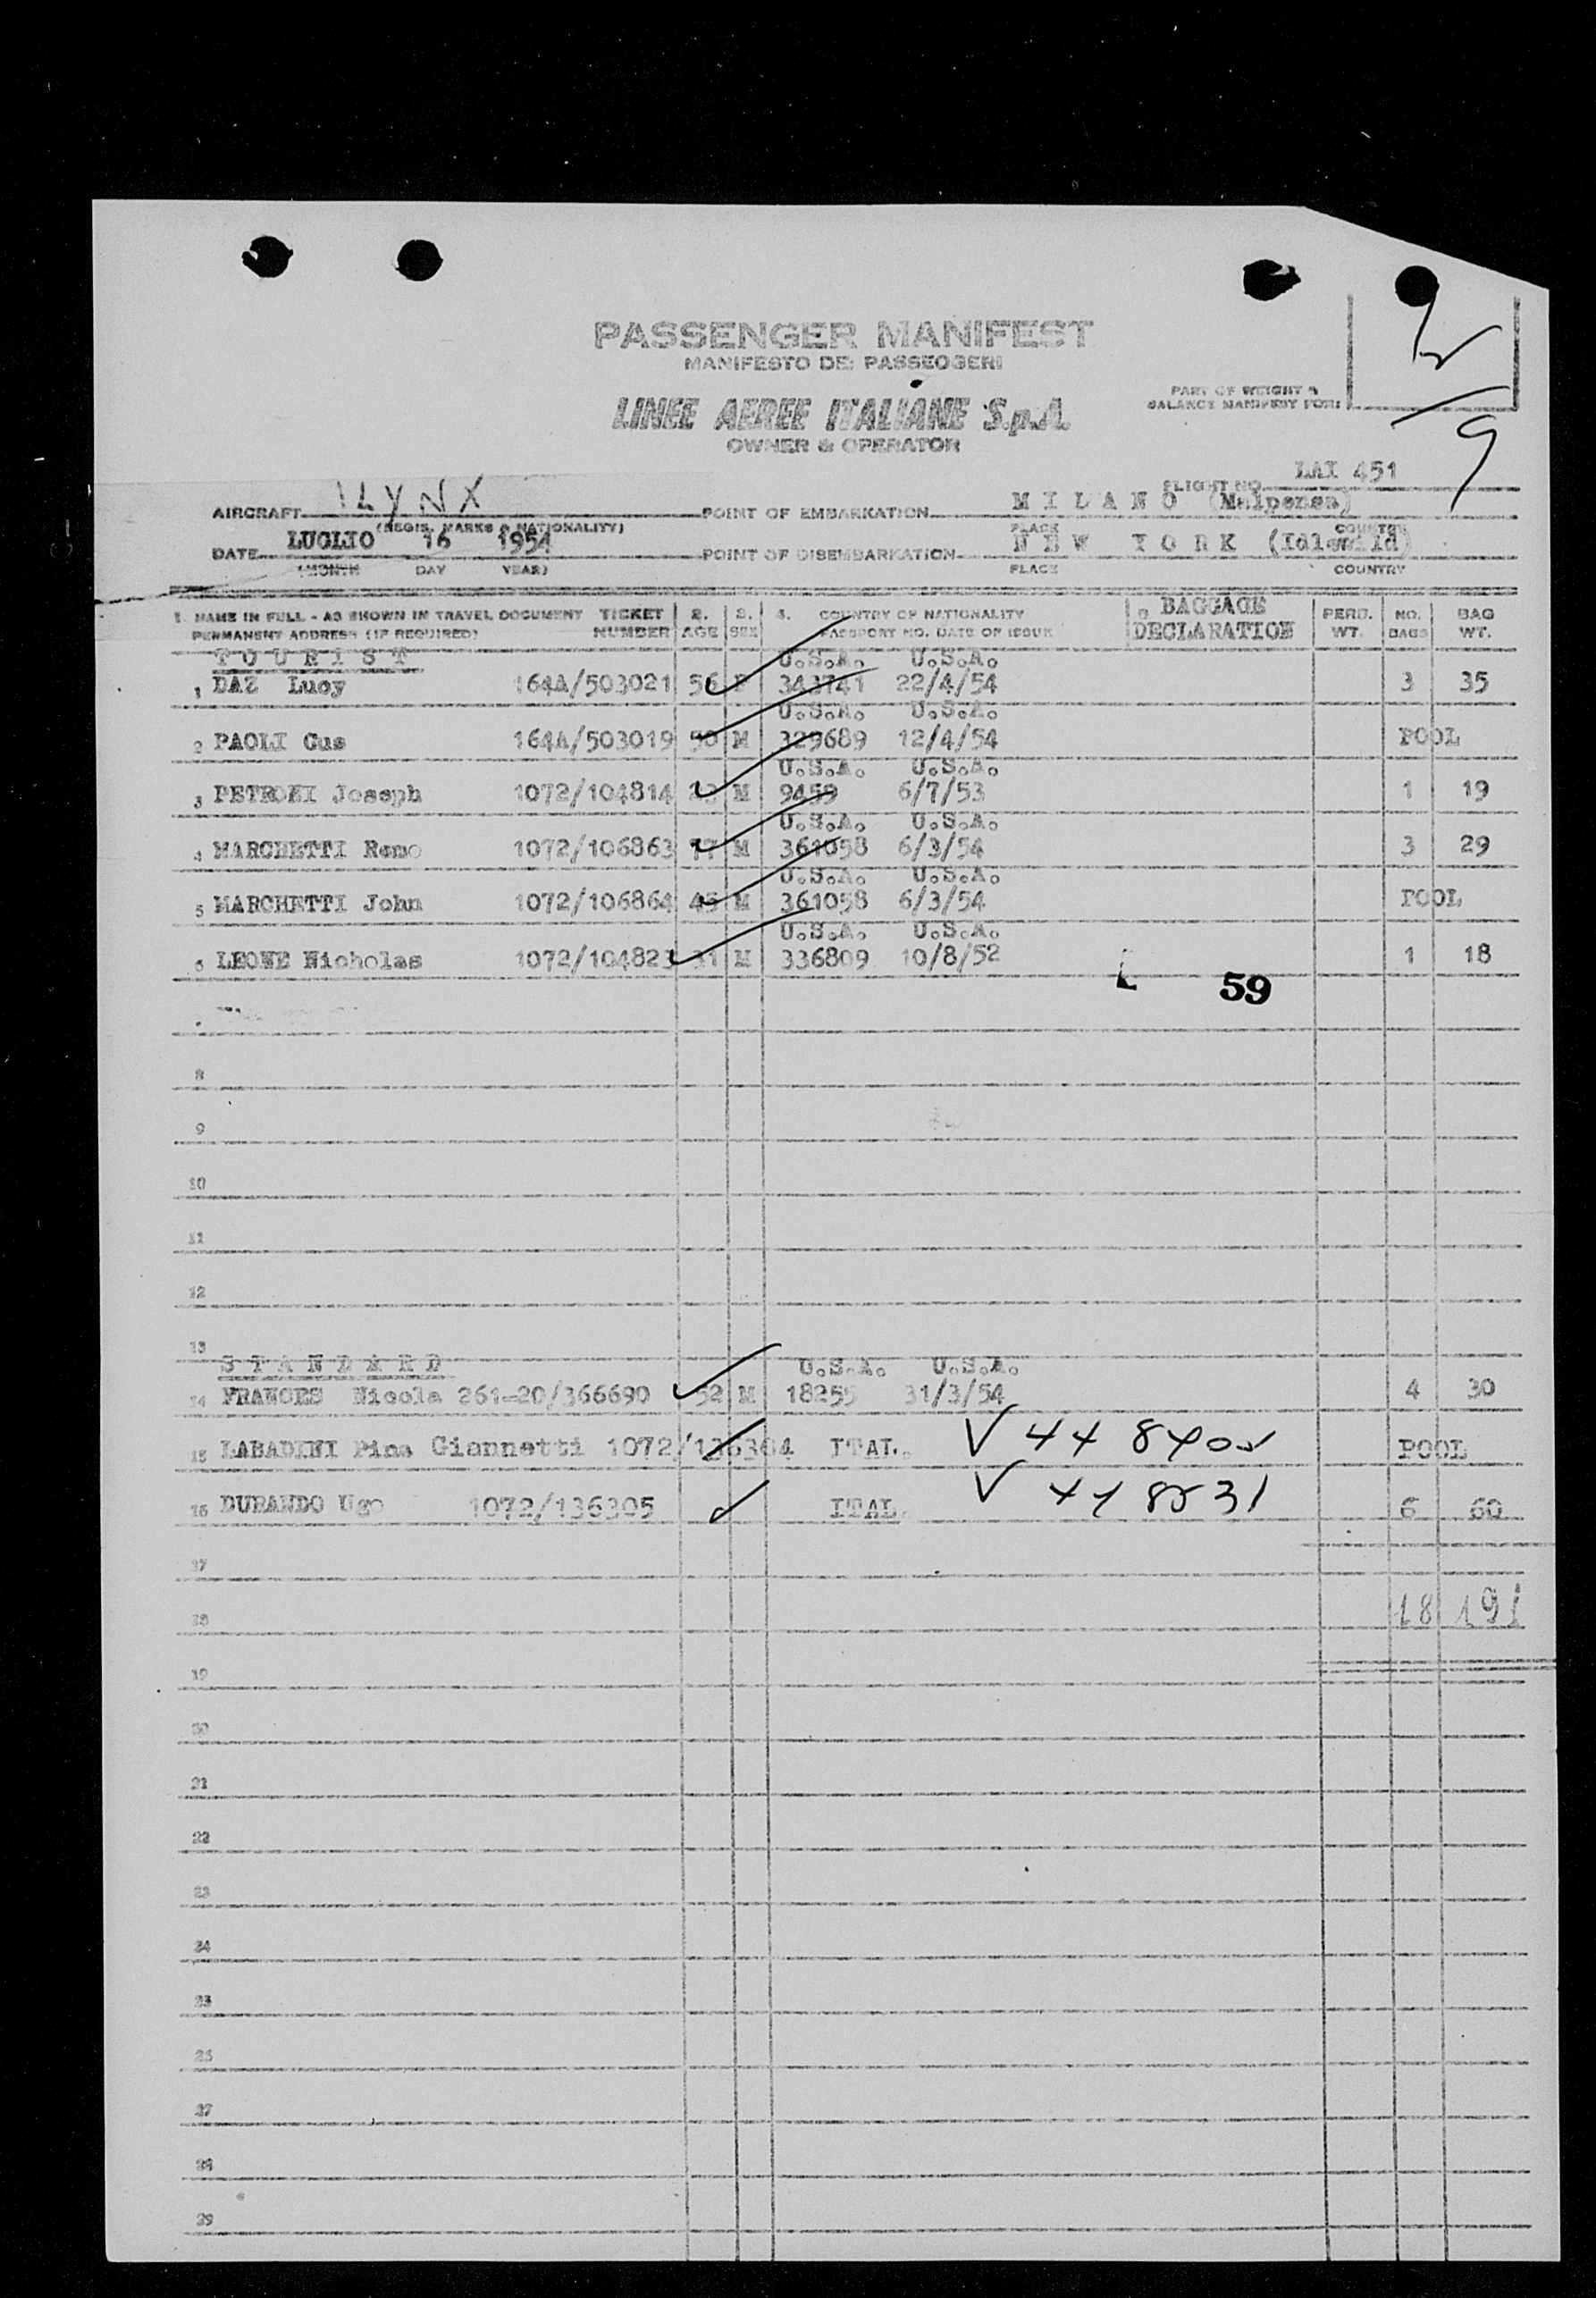 PASSENGER MANIFEST
MANIFESTO DEI PASSEGGERI
LINEE AEREE ITALIANE S.p.A.
OWNER & OPERATOR
PART OF WEIGHT &
BALANCE MANIFEST FORM
9
FLIGHT NO. LAI 451
AIRCRAFT ILYNX POINT OF EMBARKATION M I L A N O (Malpensa)
(REGIS. MARKS & NATIONALITY) PLACE COUNTRY
DATE LUGLIO 16 1954 POINT OF DISEMBARKATION N E W Y O R K (Idlewild)
(MONTH DAY YEAR) PLACE COUNTRY
1. NAME IN FULL - AS SHOWN IN TRAVEL DOCUMENT TICKET 2. 3. 4. COUNTRY OF NATIONALITY BAGGAGE PERS. NO. BAG
PERMANENT ADDRESS (IF REQUIRED) NUMBER AGE SEX PASSPORT NO. DATE OF ISSUE DECLARATION WT. BAGS WT.
T O U R I S T U.S.A. U.S.A.
1 DAZ Lucy 164A/503021 56 F 343741 22/4/54 3 35
U.S.A. U.S.A.
2 PAOLI Gus 164A/503019 50 M 329689 12/4/54 POOL
U.S.A. U.S.A.
3 PETRONI Joseph 1072/104814 M 9459 6/7/53 1 19
U.S.A. U.S.A.
4 MARCHETTI Remo 1072/106863 77 M 361058 6/3/54 3 29
U.S.A. U.S.A.
5 MARCHETTI John 1072/106864 45 M 361058 6/3/54 POOL
U.S.A. U.S.A.
6 LEONE Nicholas 1072/104823 31 M 336809 10/8/52 1 18
59
8
9
10
11
12
13
S T A N D A R D U.S.A. U.S.A.
14 FRANCES Nicola 261-20/366690 52 M 18255 31/3/54 4 30
15 LABADINI Pina Giannetti 1072/136304 ITAL. V POOL
16 DURANDO Ugo 1072/136305 ITAL. V 6 60
17
18 18 191
19
20
21
22
23
24
25
26
27
28
29